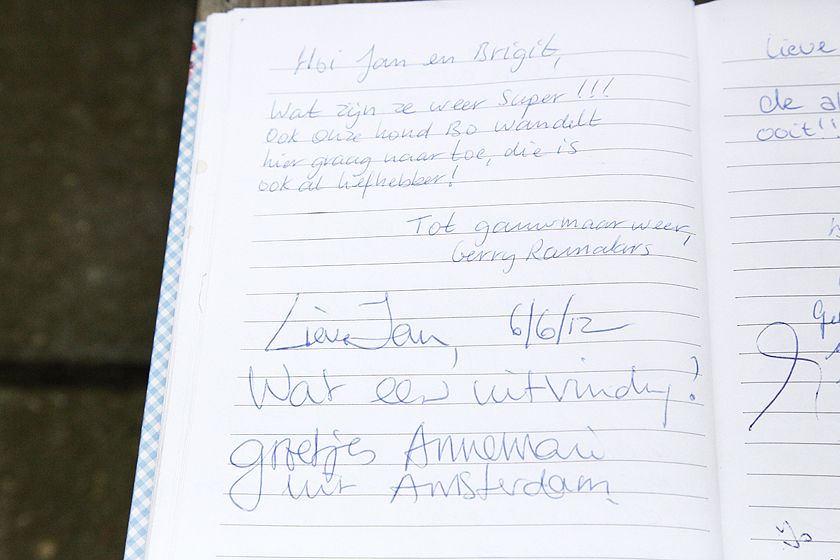 Hoi Jan en Brigit,
Wat zijn ze weer Super!!!
Ook onze hond Bo wandelt
hier graag naar toe, die is
ook al liefhebber!
Tot gauw maar weer,
Gerry
Lieve Jan, 6/6/12
Wat een uitvinding!
groetjes Annemari
uit Amsterdam
Lieve
de al
ooit!!
Jo